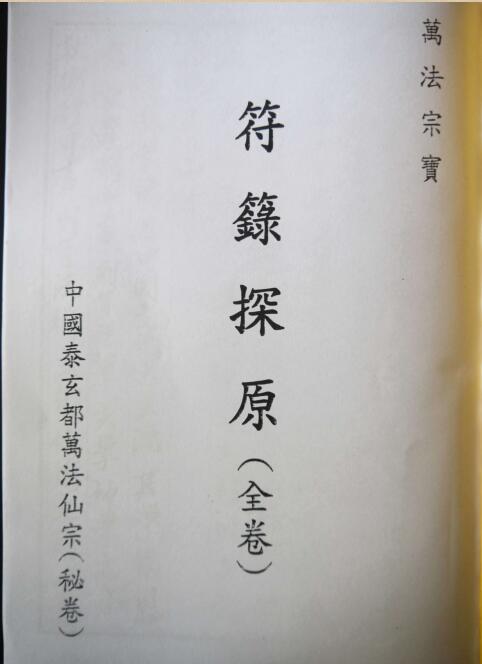 萬法宗寶
符籙探原(全卷)
中國泰玄都萬法仙宗(秘卷)